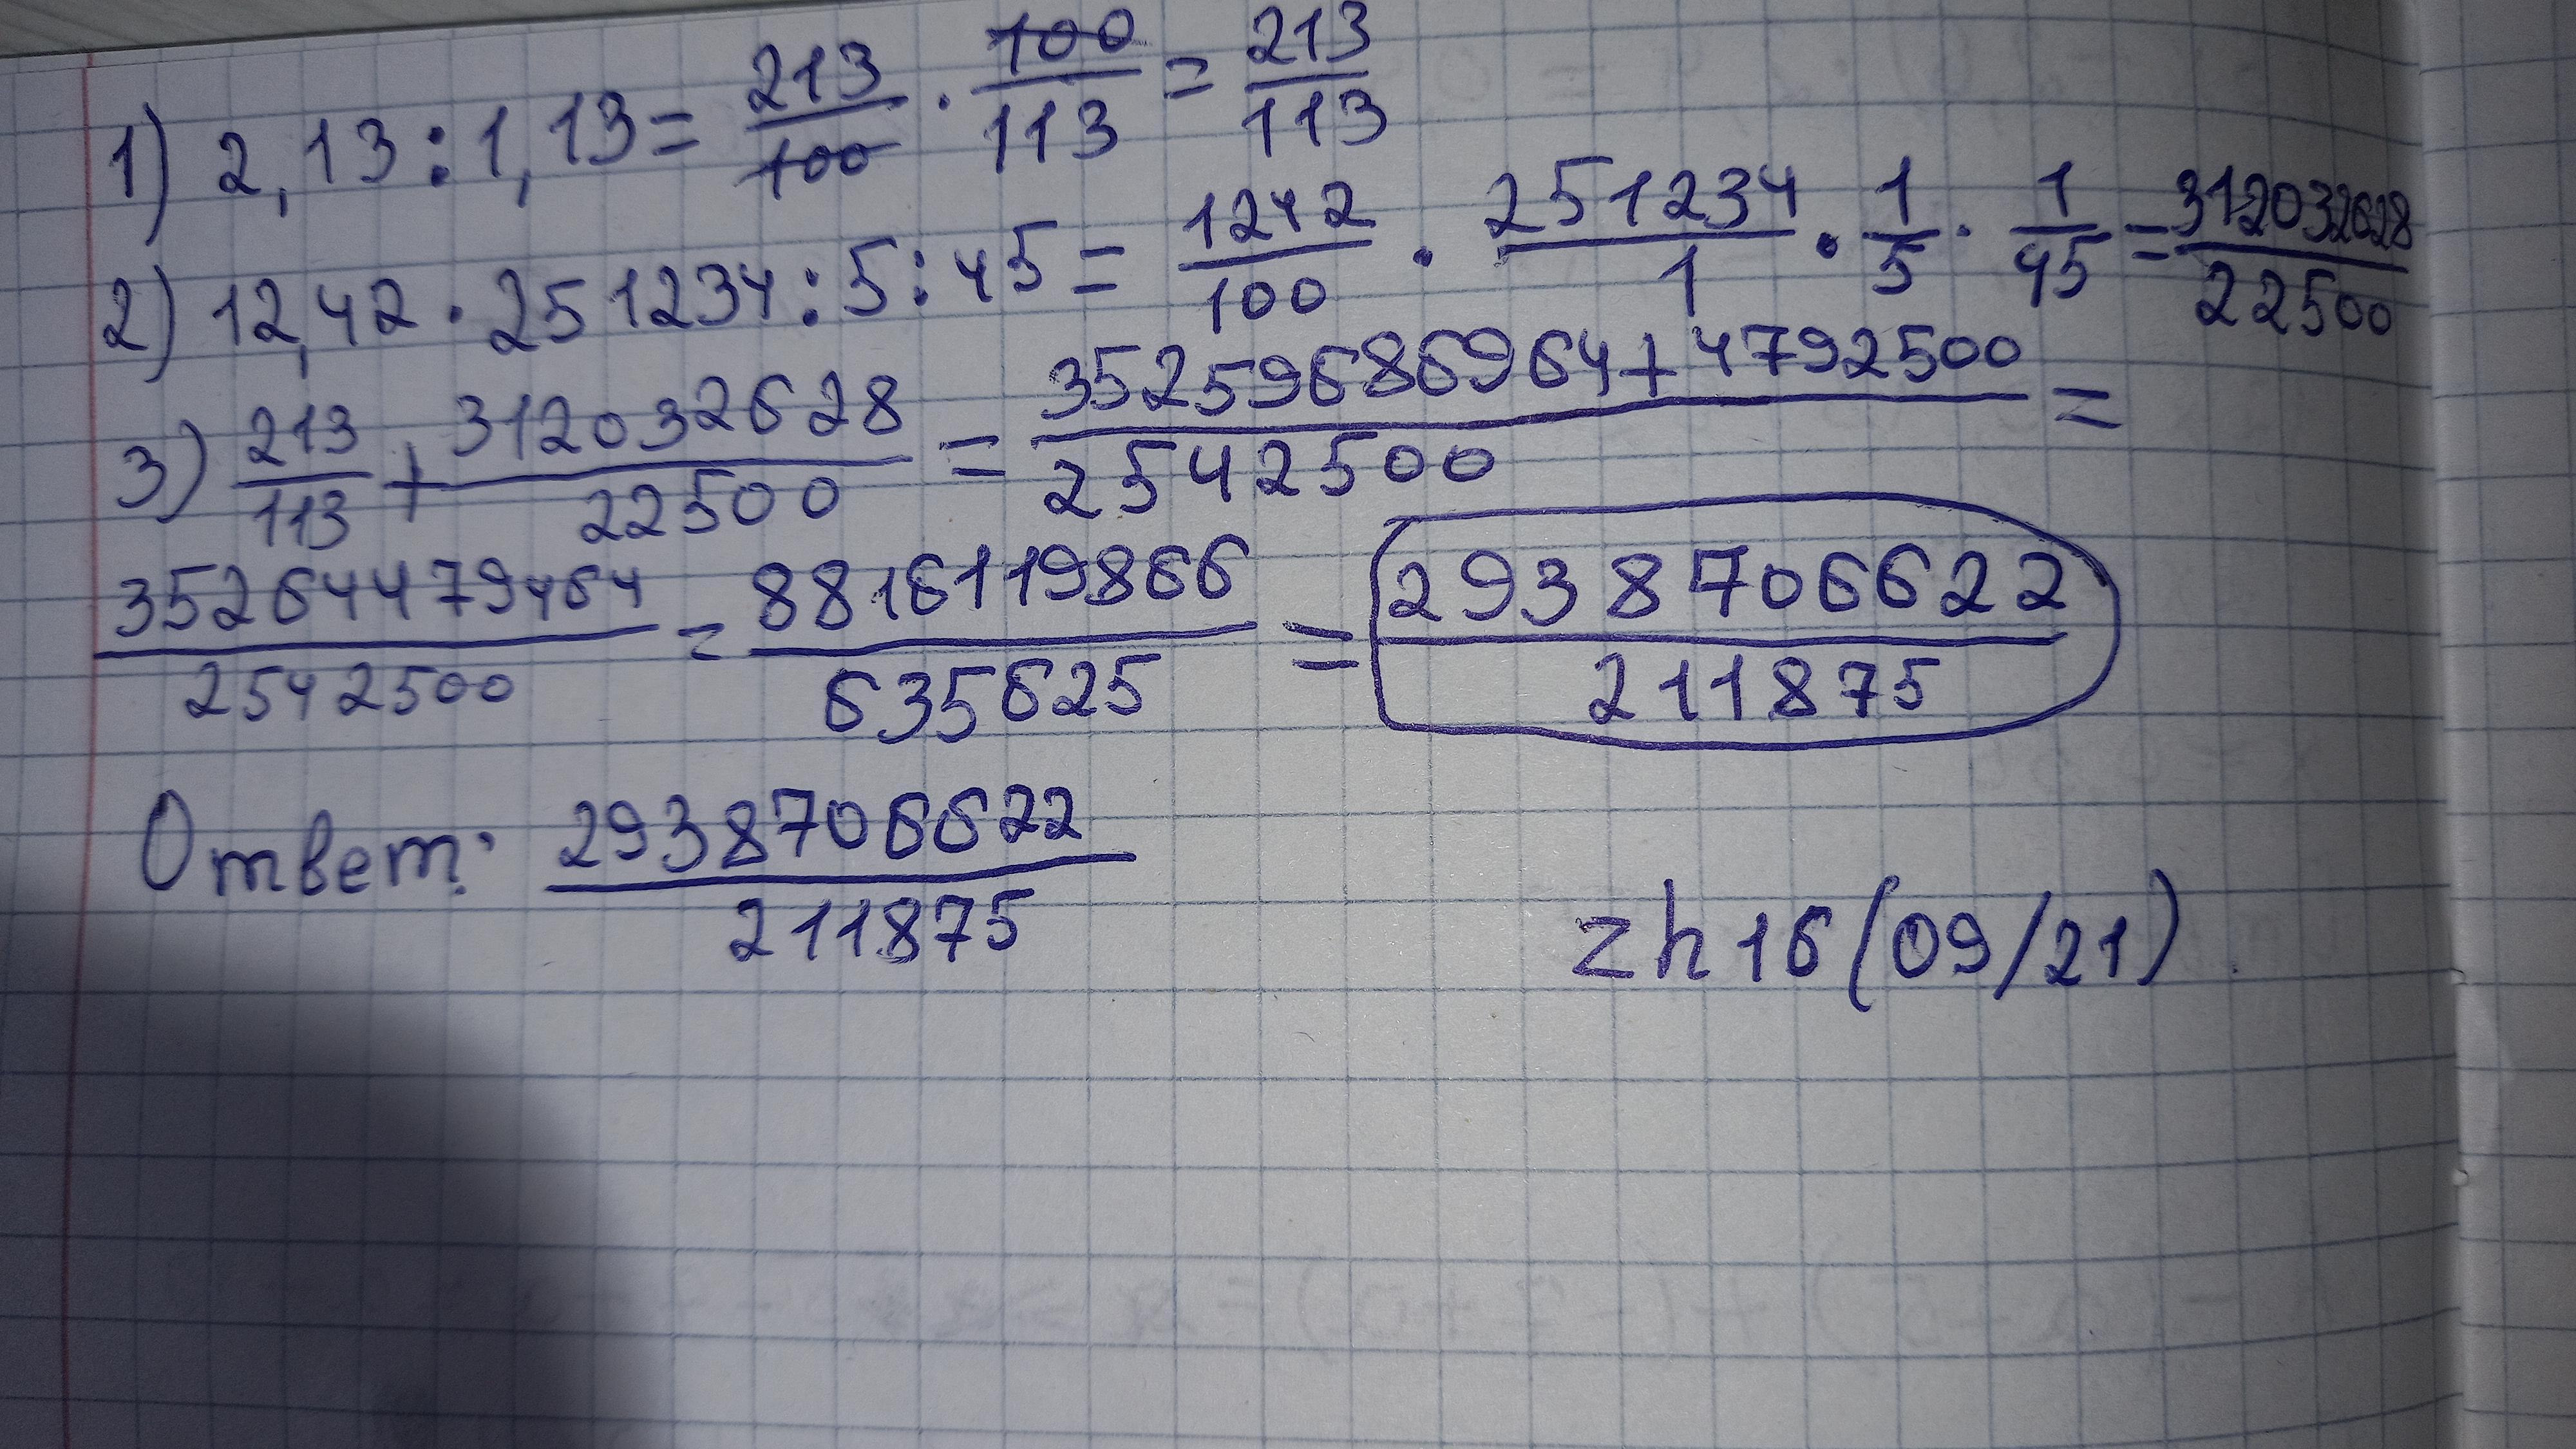 1) 2,13:1,13= 213/100 · 100/113 = 213/113
2) 12,42·251234:5:45= 1242/100 · 251234/1 · 1/5 · 1/45 = 312032628/22500
3) 213/113 + 312032628/22500 = 35259686964+4792500/2542500 =
35264479464/2542500 = 8816119866/635625 = 2938706622/211875
Ответ: 2938706622/211875
zh16(09/21)